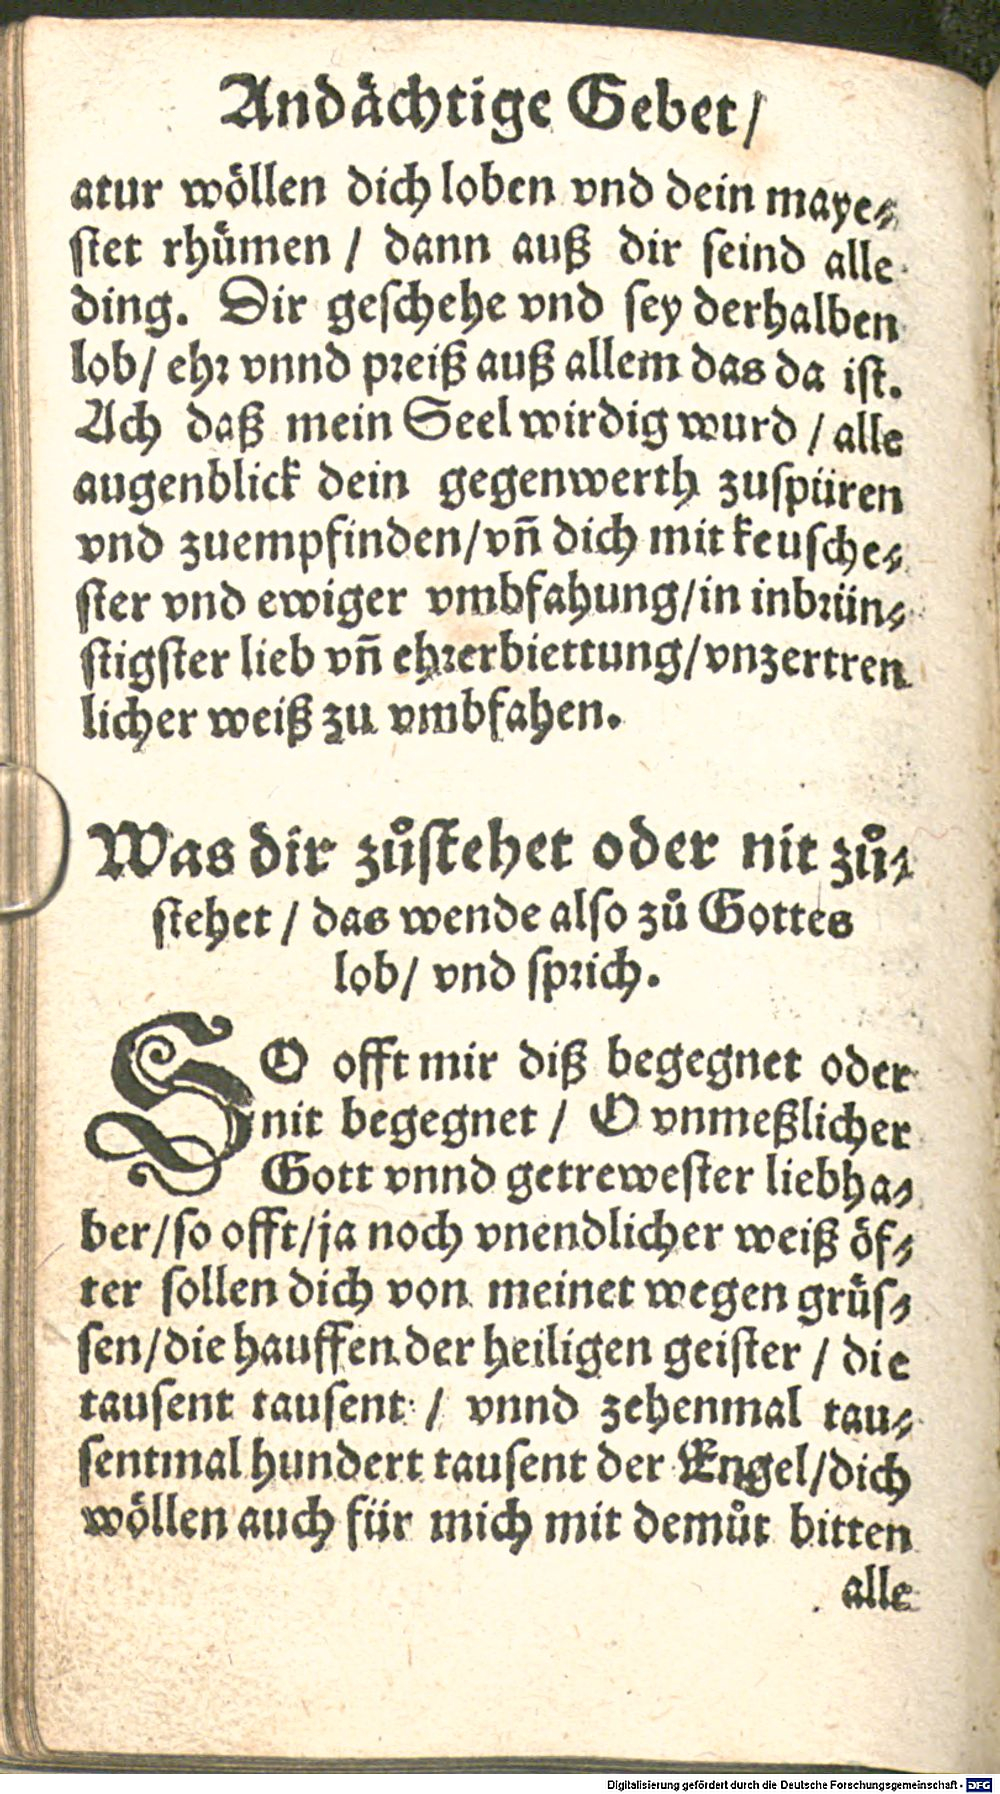 Andächtige Gebet/
atur wöllen dich loben vnd dein maye⸗
stet rhümen / dann auß dir seind alle
ding. Dir geschehe vnd sey derhalben
lob/ ehr vnnd preiß auß allem das da ist.
Ach daß mein Seel wirdig wurd / alle
augenblick dein gegenwerth zuspüren
vnd zuempfinden/vñ dich mit keusche⸗
ster vnd ewiger vmbfahung/in inbrün⸗
stigster lieb vñ ehrerbiettung/vnzertren
licher weiß zu vmbfahen.
Was dir zůstehet oder nit zů⸗
stehet / das wende also zů Gottes
lob/ vnd sprich.
SO offt mir diß begegnet oder
nit begegnet / O vnmeßlicher
Gott vnnd getrewester liebha⸗
ber/so offt/ja noch vnendlicher weiß öf⸗
ter sollen dich von meinet wegen grüs⸗
sen/die hauffen der heiligen geister / die
tausent tausent / vnnd zehenmal tau⸗
sentmal hundert tausent der Engel/dich
wöllen auch für mich mit demůt bitten
alle
Digitalisierung gefördert durch die Deutsche Forschungsgemeinschaft - DFG